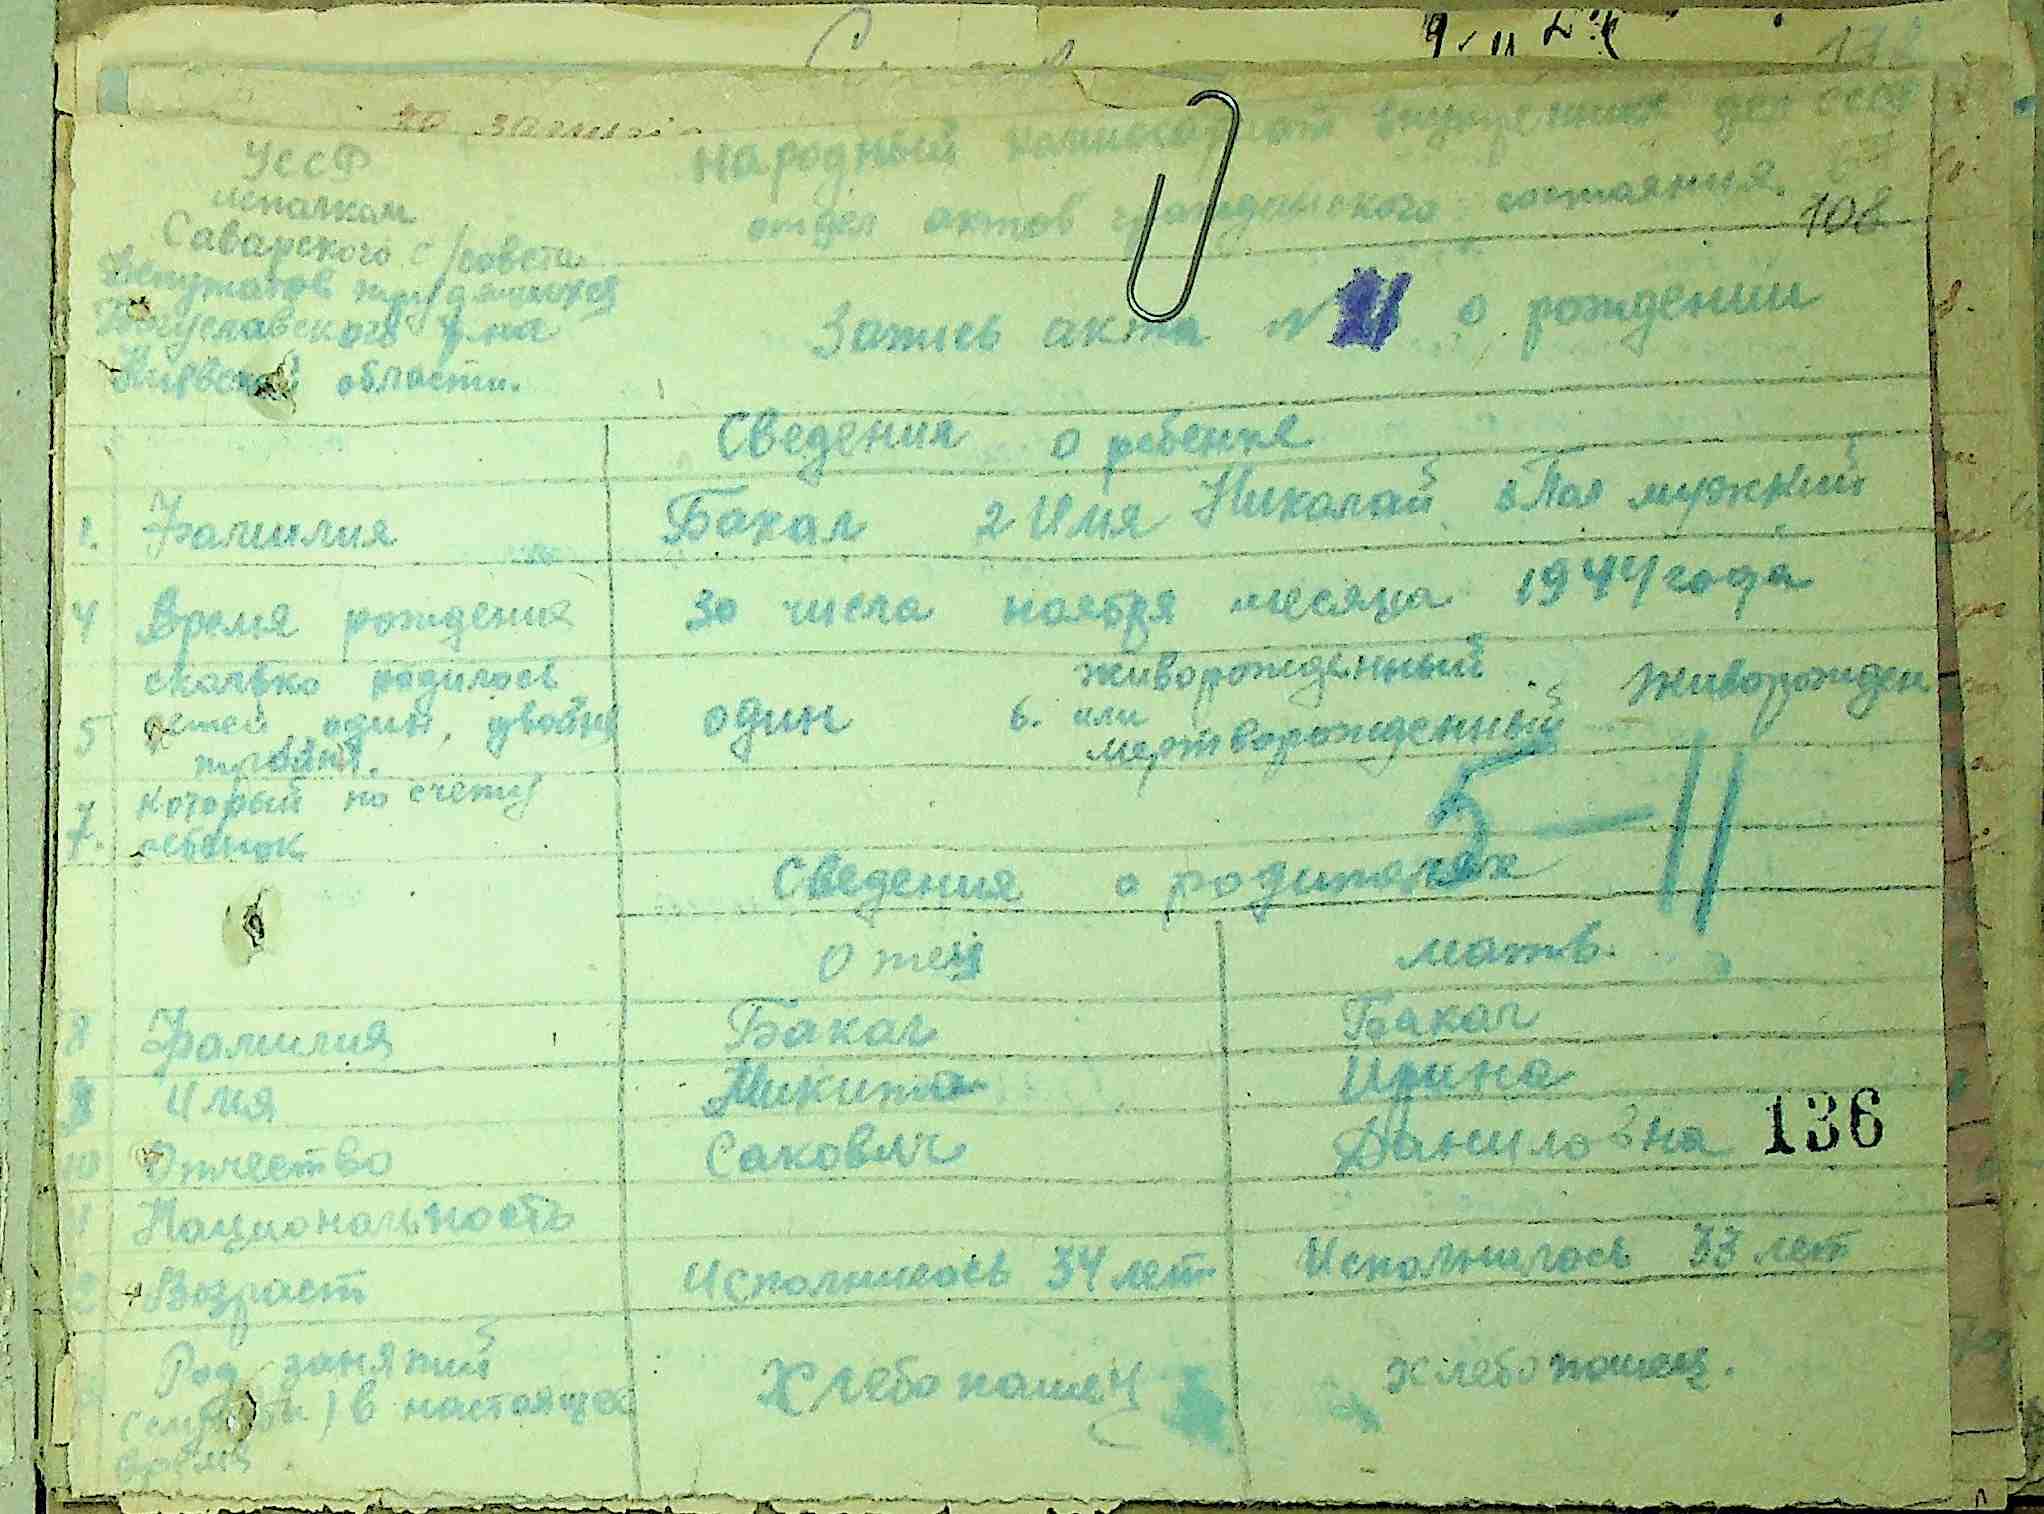 УССР
исполком
Саварского с/совета
депутатов трудящихся
Богуславского р-на
Киевской области.
Народный комиссариат внутренних дел СССР
отдел актов гражданского состояния.
108
Запись акта № 21 о рождении
Сведения о ребенке
1. Фамилия Бакал 2 Имя Николай 3 Пол мужский
4 Время рождения 30 числа ноября месяца 1944 года
5 сколько родилось детей один, двойня тройня. один 6. живорожденный или мертворожденный живорожден
7. который по счету ребенок
5-11
Сведения о родителях
Отец мать.
8 Фамилия Бакал Бакал
9 Имя Микита Ирина
10 Отчество Сакович Даниловна
136
Национальность
Возраст Исполнилось 34 лет Исполнилось 33 лет
Род занятий в настоящее время Хлебопашец хлебопашец.